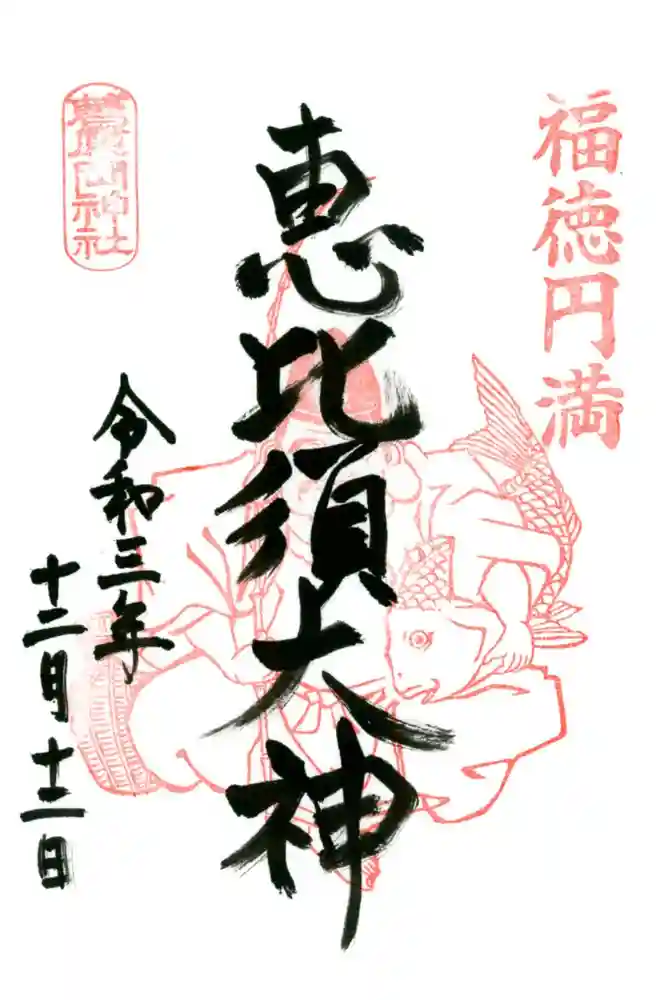 福徳円満
恵比須大神
令和三年
十二月十二日
神社